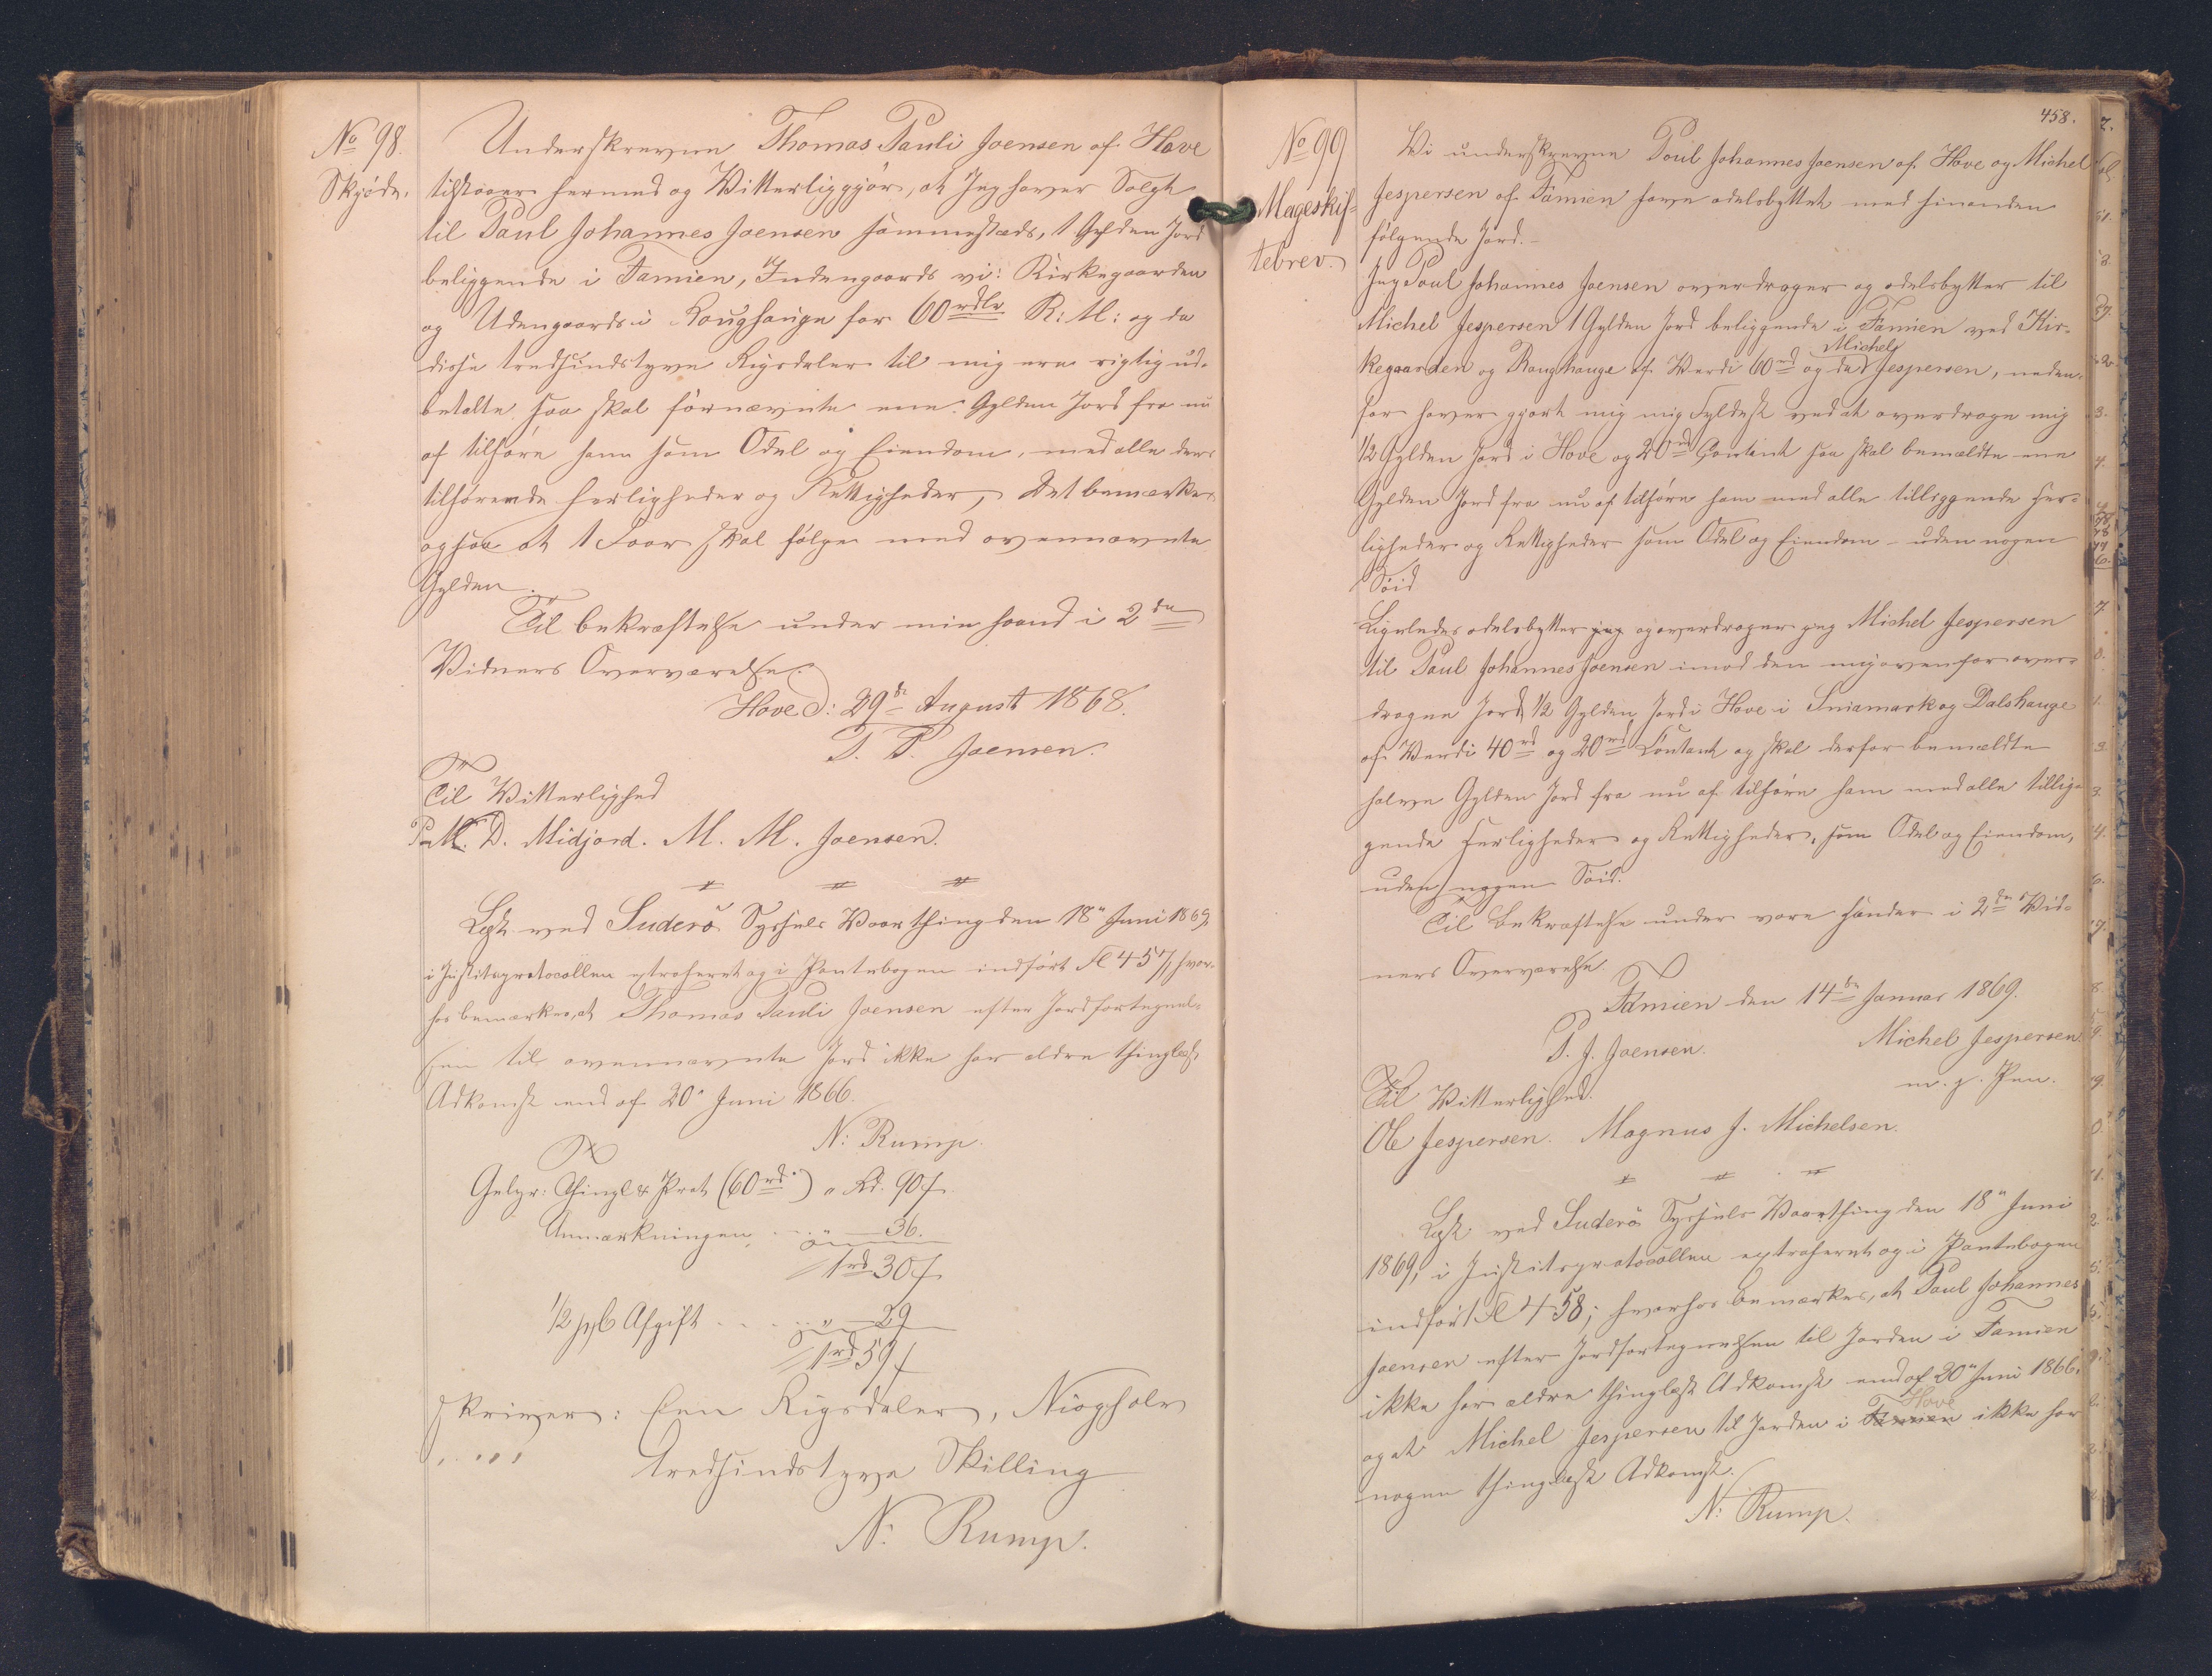 No 98.
Skjöde.
Underskrevne Thomas Pauli Joensen af Hove
tilstaaer hermed og Witterliggjör, at Jeg haver Solgt
til Paul Johannes Joensen sammestæds, 1 Gylden Jord
beliggende i Famien, Indengaards vi: Kirkegaarden
og Udengaards i Roughauge for 60 rdlr R: M: og da
disse tredsindstyve Rigsdaler til mig ere rigtig ud-
betalte, saa skal förnævnte ene Gylden Jord fra nu
af tilhöre ham som Odel og Eiendom, med alle dens
tilhörende herligheder og Rettigheder, Det bemærkes
ogsaa at 1 Faar skal fölge med ovennævnte
Gylden.
Til bekræftelse under min haand i 2de
Vidners Overværelse.
Hove d: 29de August 1868.
T. P. Joensen.
Til Witterlighed
P. M. D. Midjord. M. M. Joensen.
Læst ved Suderö Syssels Vaarthing den 18" Juni 1869,
i Justitsprotocollen extraheret og i Pantebogen indfört Fol 457, hvor-
hos bemærkes, at Thomas Pauli Joensen efter Jordfortegnel-
sen til ovennævnte Jord ikke har ældre thinglæst
Adkomst end af 20" Juni 1866.
N: Rump.
Gebyr: Thingl & Prot (60 rd) " Rd. 90 s
Anmærkningen . . " 36.
1 rd 30 s
1/2 pC Afgift . . . . " 29
1 rd 59 s
skriver: Een Rigsdaler, Nioghalv
tredsindstyve Skilling
N. Rump.
458.
No 99
Mageskif-
tebrev.
Wi underskrevne Poul Johannes Joensen af Hove og Michel
Jespersen af Famien have odelsbyttet med hinanden
fölgende Jord.
Jeg Poul Johannes Joensen overdrager og odelsbytter til
Michel Jespersen 1 Gylden Jord beliggende i Famien ved Kir-
Michel
kegaarden og Roughauge af Werdi 60 rd og da Jespersen, neden-
for haver gjort mig mig Fyldest ved at overdrage mig
1/2 Gylden Jord i Hove og 20 rd Contant saa skal bemældte ene
Gylden Jord fra nu af tilhöre ham med alle tilliggende Her-
ligheder og Rettigheder som Odel og Eiendom - uden nogen
Söid
Ligeledes odelsbytter jeg og overdrager jeg Michel Jespersen
til Paul Johannes Joensen imod den mig ovenfor over-
dragne Jord 1/2 Gylden Jord i Hove i Sniamark og Dalshauge
af Werdi 40 rd og 20 rd Contant og skal derfor bemældte
halve Gylden Jord fra nu af tilhöre ham med alle tillig-
gende Herligheder og Rettigheder, som Odel og Eiendom,
uden nogen Söid.
Til Bekræftelse under vore hænder i 2de Vid-
ners Overværelse.
Famien den 14de Januar 1869.
P. J. Joensen. Michel Jespersen
m. f. Pen.
Til Witterlighed.
Ole Jespersen. Magnus J. Michelsen.
Læst ved Suderö Syssels Vaarthing den 18" Juni
1869, i Justitsprotocollen extraheret og i Pantebogen
indfört Fol 458; hvorhos bemærkes, at Paul Johannes
Joensen efter Jordfortegnelsen til Jorden i Famien
ikke har ældre thinglæst Adkomst end af 20" Juni 1866.
Hove
og at Michel Jespersen til Jorden i Famien ikke har
nogen thinglæst Adkomst.
N: Rump.